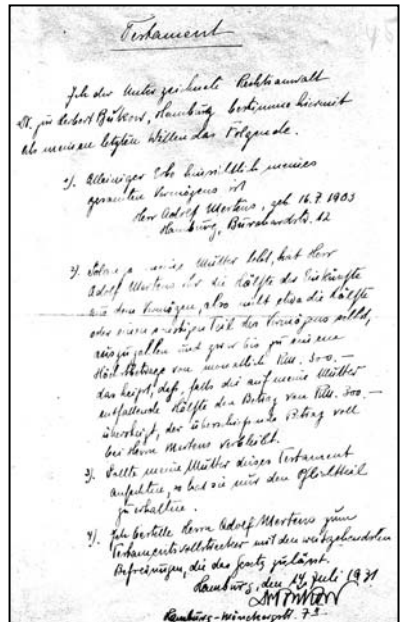 Testament
Ich der Unterzeichnete Rechtsanwalt
Dr. jur Herbert Bukow, Hamburg bestimme hiermit
als meinen letzten Willen das Folgende.
1). Alleiniger Erbe hinsichtlich meines
gesamten Vermögens ist
Herr Adolf Mertens, geb 16.7.1903
Hamburg, Burchardstr. 12
2). Solange meine Mutter lebt, hat Herr
Adolf Mertens ihr die Hälfte der Einkünfte
aus dem Vermögen, also nicht etwa die Hälfte
oder einen Teil des Vermögens selbst,
auszuzahlen und zwar bis zu einem
Höchstbetrage von monatlich RM. 300.—
das heißt, daß, falls die auf meine Mutter
entfallende Hälfte den Betrag von RM. 300—
übersteigt, der überschießende Betrag voll
bei Herrn Mertens verbleibt.
3). Sollte meine Mutter dieses Testament
anfechten, so hat sie nur den Pflichtteil
zu erhalten.
4). Ich bestelle Herrn Adolf Mertens zum
Testamentsvollstrecker mit den weitgehendsten
Befreiungen, die das Gesetz zuläßt.
Hamburg, den 14 Juli 1931
Dr Bukow
Hamburg-